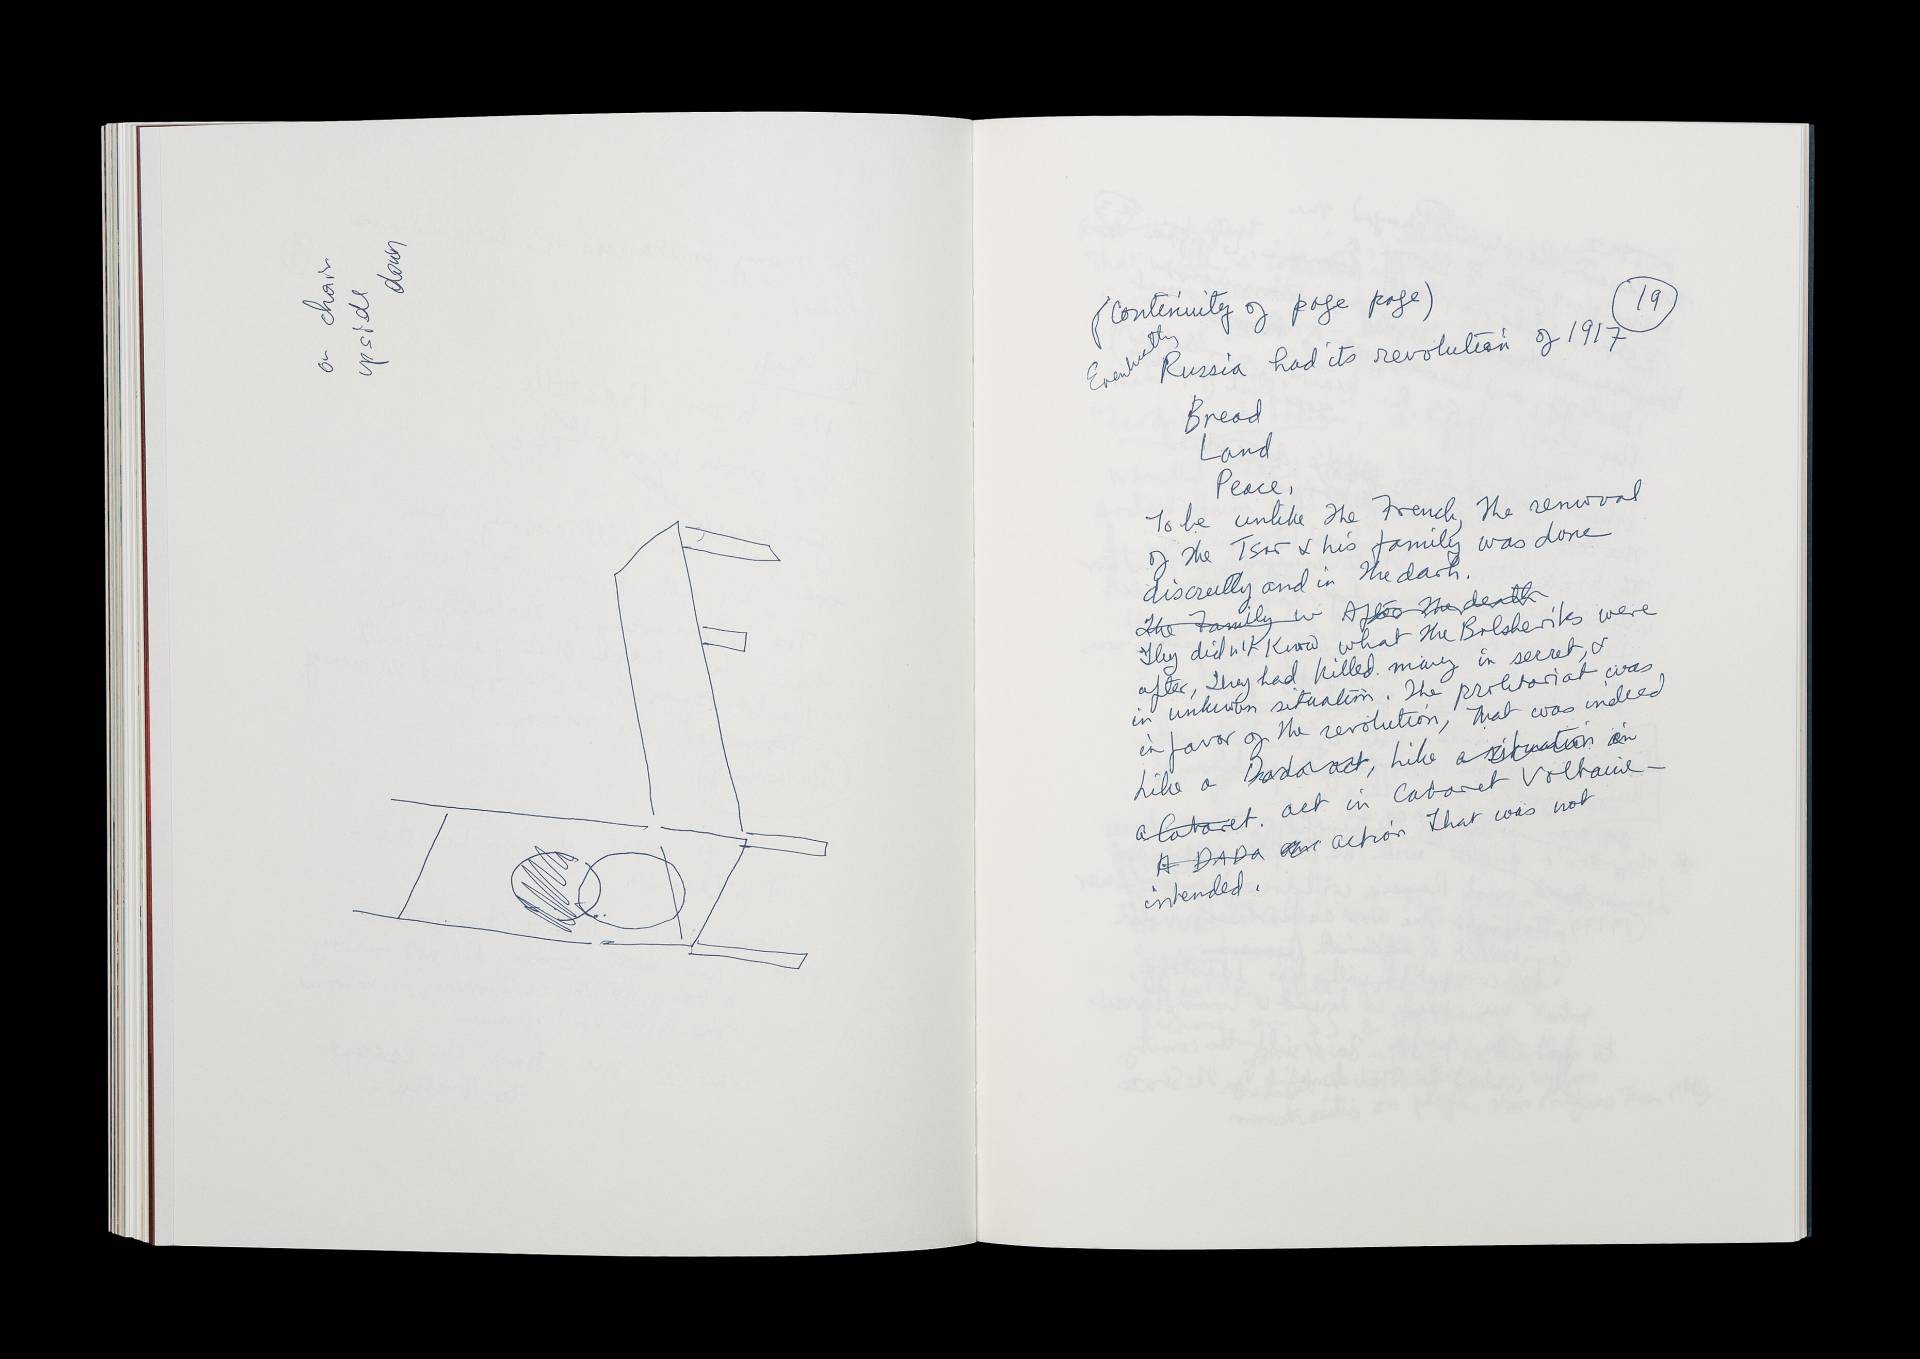 on chair
upside
down
(Continuity of page page)
19
Eventually
Russia had its revolution of 1917
Bread
Land
Peace.
To be unlike the French, the removal
of the Tsar & his family was done
discreetly and in the dark.
The Family w After the death
They didn't know what the Bolsheviks were
after, they had killed many in secret, &
in unknown situation. The proletariat was
in favor of the revolution, that was indeed
like a Dada act, like a situation in
a Cabaret. act in Cabaret Voltaire —
A DADA action that was not
intended.